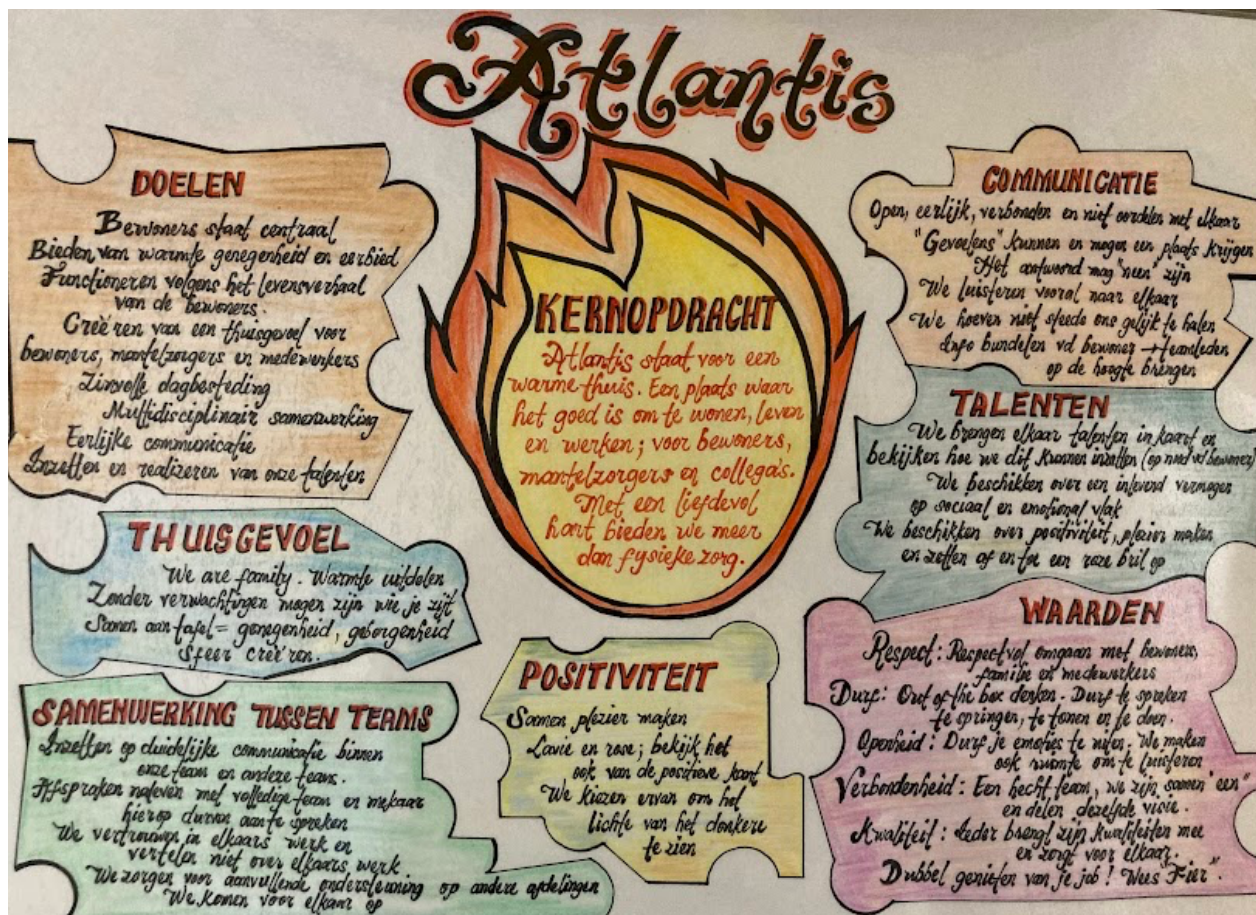 Atlantis
DOELEN
Bewoners staat centraal
Bieden van warmte genegenheid en eerbied
Functioneren volgens het levensverhaal
van de bewoners.
Creëren van een thuisgevoel voor
bewoners, mantelzorgers en medewerkers
Zinvolle dagbesteding
Multidisciplinair samenwerking
Eerlijke communicatie
Inzetten en realizeren van onze talenten
THUISGEVOEL
We are family. Warmte uitdelen
Zonder verwachtingen mogen zijn wie je zijt
Samen aan tafel = genegenheid, geborgenheid
Sfeer creëren.
SAMENWERKING TUSSEN TEAMS
Inzetten op duidelijke communicatie binnen
onze team en andere teams.
Afspraken naleven met volledige team en mekaar
hierop durven aan te spreken
We vertrouwen in elkaars werk en
vertelen niet over elkaars werk
We zorgen voor aanvullende ondersteuning op andere afdelingen
We komen voor elkaar op
KERNOPDRACHT
Atlantis staat voor een
warme thuis. Een plaats waar
het goed is om te wonen, leven
en werken; voor bewoners,
mantelzorgers en collega's.
Met een liefdevol
hart bieden we meer
dan fysieke zorg.
POSITIVITEIT
Samen plezier maken
Lavie en rose; bekijk het
ook van de positieve kant
We kiezen ervan om het
lichte van het donkere
te zien
COMMUNICATIE
Open, eerlijk, verbonden en niet oordelen met elkaar
"Gevoelens" kunnen en mogen een plaats krijgen
Het antwoord mag "neen" zijn
We luisteren vooral naar elkaar
We hoeven niet steeds ons gelijk te halen
Info bundelen vd bewoner → teamleden
op de hoogte brengen
TALENTEN
We brengen elkaar talenten in kaart en
bekijken hoe we dit kunnen inzetten (op nood vd bewoner)
We beschikken over een inlevend vermogen
op sociaal en emotional vlak
We beschikken over positiviteit, plezier maken
en zetten af en toe een roze bril op
WAARDEN
Respect: Respectvol omgaan met bewoners,
familie en medewerkers
Durf: Out of the box denken. Durf te spreken
te springen, te tonen en te doen.
Openheid: Durf je emoties te uiten. We maken
ook ruimte om te luisteren
Verbondenheid: Een hecht team, we zijn samen "een"
en delen dezelfde visie.
Kwaliteit: Ieder brengt zijn kwaliteiten mee
en zorgt voor elkaar.
Dubbel genieten van je job! Wees "Fier".